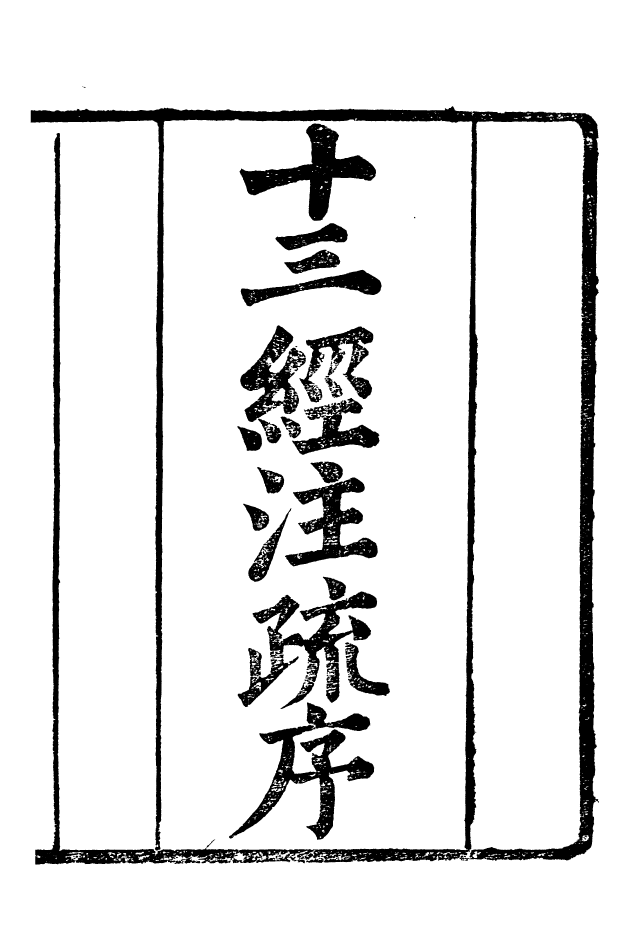 十三經注疏序